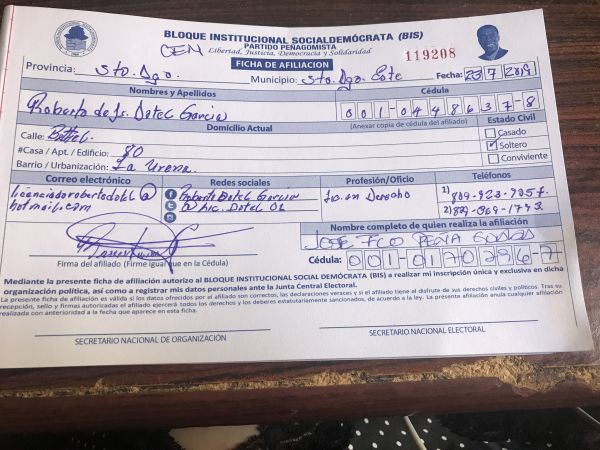 BLOQUE INSTITUCIONAL SOCIALDEMÓCRATA (BIS)
PARTIDO PEÑAGOMISTA
CEN Libertad, Justicia, Democracia y Solidaridad
FICHA DE AFILIACION 119208
Provincia: Sto. Dgo. Municipio: Sto. Dgo. Este Fecha: 23 7 2019
Nombres y Apellidos Cédula
Roberto de Js. Dotel Garcia 001-0448637-8
(Anexar copia de cédula del afiliado)
Domicilio Actual Estado Civil
Calle: Bethel. Casado
#Casa / Apt. / Edificio: 80 Soltero
Barrio / Urbanización: La Urena. Conviviente
Correo electrónico Redes sociales Profesión/Oficio Teléfonos
licenciadorobertodotel@ Roberto Dotel Garcia Lic. en Derecho 1) 809-923-7357.
hotmail.com Lic. Dotel 2) 829-069-1793
Nombre completo de quien realiza la afiliación
JOSE FCO PEÑA
Firma del afiliado (Firme igual que en la Cédula) Cédula: 001-0170296-7
Mediante la presente ficha de afiliación autorizo al BLOQUE INSTITUCIONAL SOCIAL DEMÓCRATA (BIS) a realizar mi inscripción única y exclusiva en dicha
organización política, así como a registrar mis datos personales ante la Junta Central Electoral.
La presente ficha de afiliación es válida si los datos ofrecidos por el afiliado son correctos, las declaraciones veraces y si el afiliado tiene el disfrute de sus derechos civiles y políticos. Tras su
recepción, sello y firmas autorizadas el afiliado ejercerá todos los derechos y los deberes estatutariamente sancionados, de acuerdo a la ley. La presente afiliación anula cualquier afiliación
realizada con anterioridad a la fecha que aparece en esta ficha.
SECRETARIO NACIONAL DE ORGANIZACIÓN SECRETARIO NACIONAL ELECTORAL